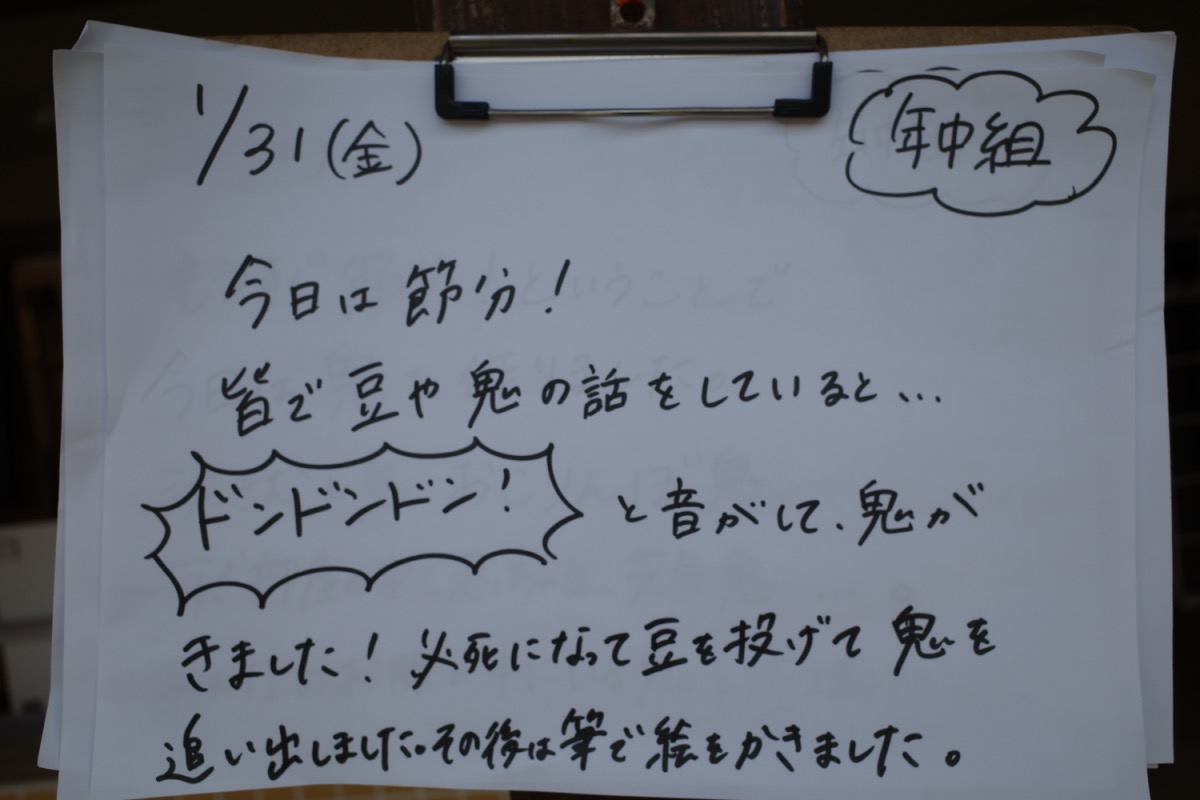 1/31(金)
年中組
今日は節分!
皆で豆や鬼の話をしていると...
ドンドンドン! と音がして、鬼が
きました! 必死になって豆を投げて鬼を
追い出しました。その後は筆で絵をかきました。